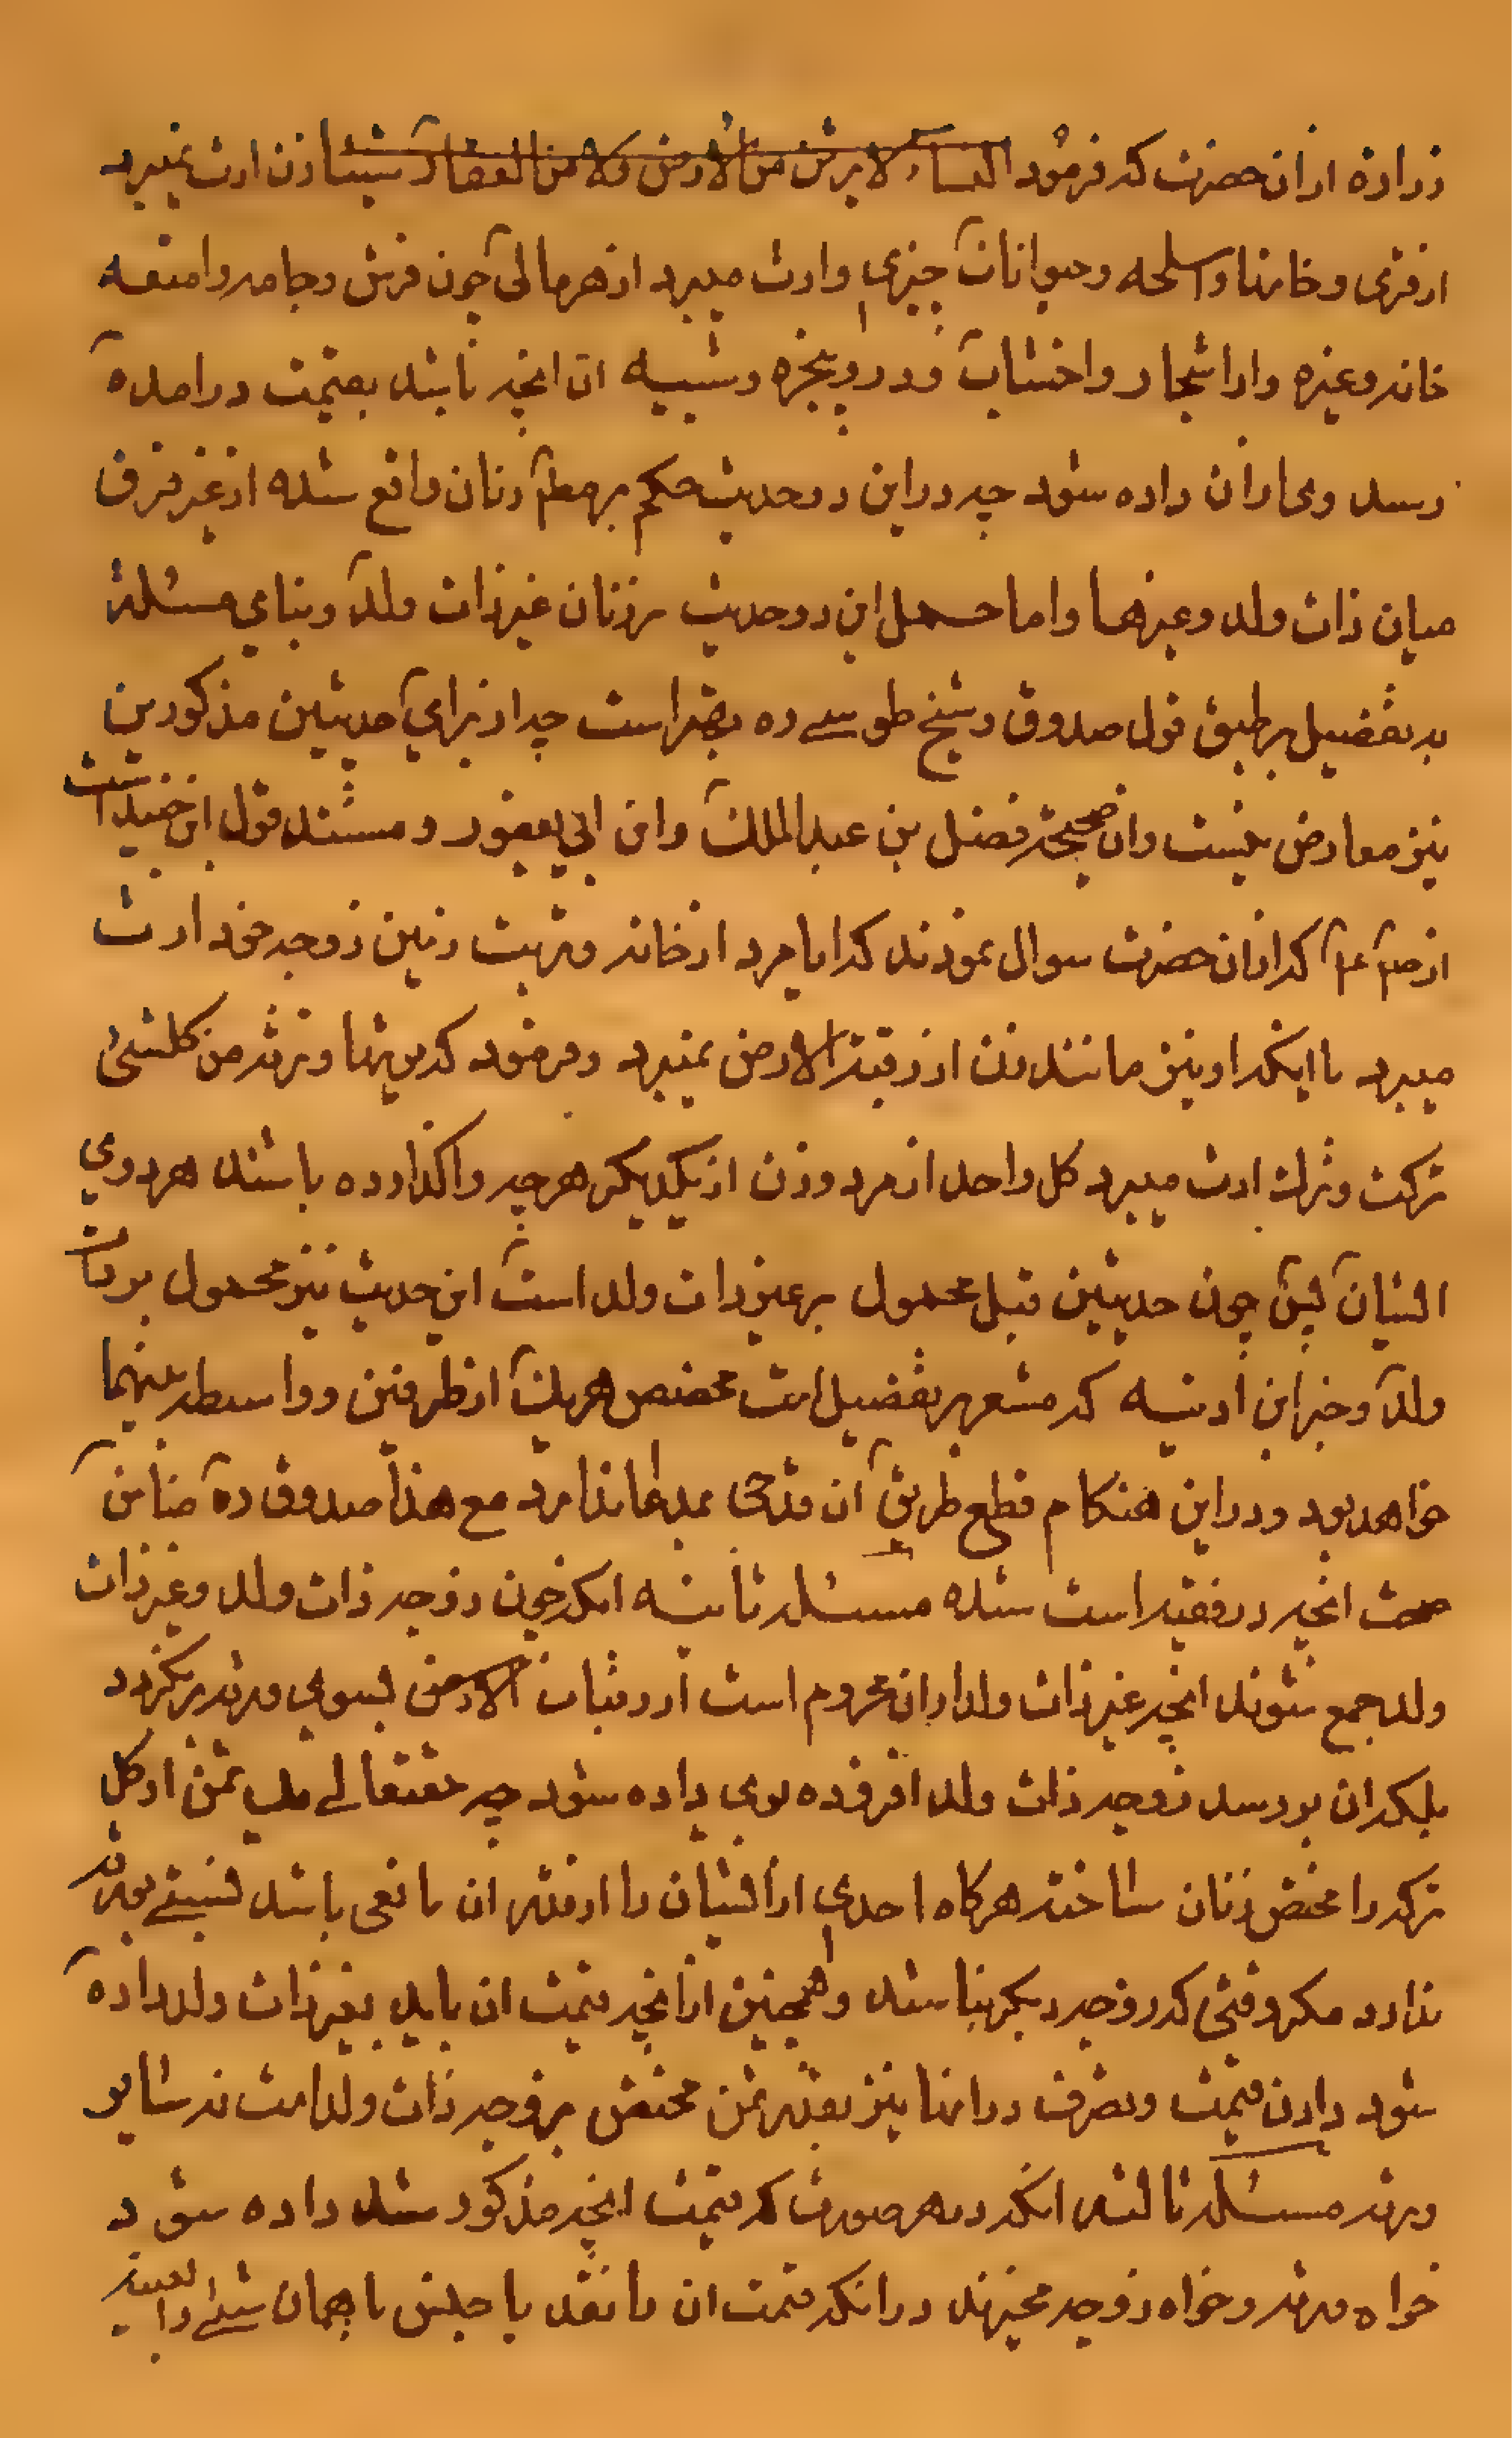 زراره ازان حضرت که فرمود النساء لا یرثن من الارض ولا من العقار شیئا زن ارث نمیبرد
از قری و خانها و اسلحه و حیوانات چیزی و ارث میبرد از هر مالی چون فرش و جامه و امتعه
خانه وغیره و از اشجار و اخشاب و در و پنجره و شبیه ان انچه باشد بقیمت درامده
رسد وی ازان داده شود چه در این دو حدیث حکم بر مطلق زنان واقع شده از غیر فرق
میان ذات ولد وغیرها واما حمل این دو حدیث بر زنان غیر ذات ولد و بنای مسئله
به تفضیل بر طبق قول صدوق و شیخ طوسے ره بهتر است چه از برای حدیثین مذکورین
نیز معارض نیست وان صحیحه فضل بن عبدالملک وابن ابی یعفور و مستند قول ابن جنید است
از ص ع که ازان حضرت سوال نمودند که ایا مرد از خانه و تربت زمین زوجه خود ارث
میبرد یا اینکه او نیز مانند زن از رقبة الارض نمیبرد و فرمود که یرثها و ترثه من کلشئ
ترکت و ترک ارث میبرد کل واحد از مرد و زن از یکدیکر هر چه واکذارده باشند هر دوی
ایشان پس چون حدیثین قبل محمول بر غیر ذات ولد است این حدیث نیز محمول بر ذات
ولد و خبر ابن اذنیه که مشعر بر تفضیل است مخصص هر یک از طرفین و واسطه بینهما
خواهد بود و در این هنکام قطع طریق ان قدحی بمدعا ندارد مع هذا صدوق ره ضامن
صحت انچه در فقیه است شده مسئله ثانیه انکه چون زوجه ذات ولد وغیر ذات
ولد جمع شوند انچه غیر ذات ولد ازان محروم است از رقبات الارض بسوی ورثه برنکردد
بلکه ان بر رسد زوجه ذات ولد افزوده بوی داده شود چه حقتعالے ثمن از کل
ترکه را مختص زنان ساخته هرکاه احدی از ایشان را از ان مانعی باشد نسبتے بورثه
ندارد مکر وقتی که زوجه دیکر نباشد و همچنین از انچه قیمت ان باید بغیر ذات ولد داده
شود دادن قیمت و تصرف در انها نیز بقدر ثمن مختص بزوجه ذات ولد است نه سایر
ورثه مسئله ثالثه انکه در هر صورت که قیمت انچه مذکور شد داده شود
خواه ورثه و خواه زوجه مخیرند در انکه قیمت ان را نقد یا جنس یا همان شئے را بعینه